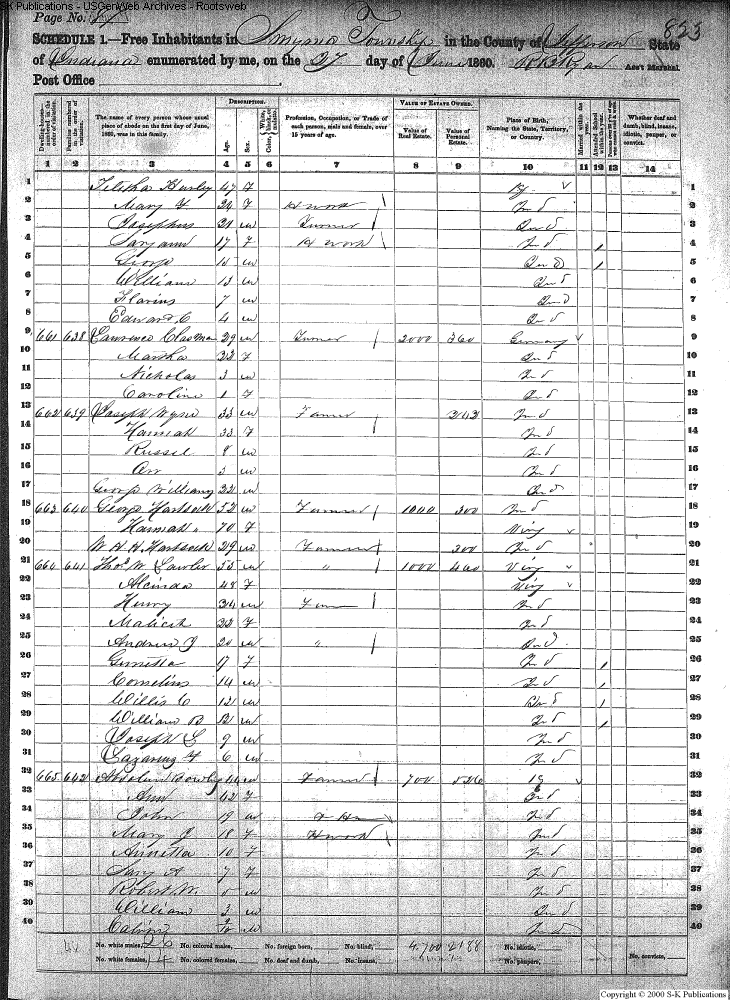 S-K Publications - USGenWeb Archives - Rootsweb
Page No. 823
SCHEDULE 1.—Free Inhabitants in Smyrna Township in the County of Jefferson State
of Indiana enumerated by me, on the 27 day of June 1860. Ryan Ass't Marshal.
Post Office
DESCRIPTION. VALUE OF ESTATE OWNED.
Dwelling-houses numbered in the order of visitation. Families numbered in the order of visitation. The name of every person whose usual place of abode on the first day of June, 1860, was in this family. Age. Sex. Color, White, black, or mulatto. Profession, Occupation, or Trade of each person, male and female, over 15 years of age. Value of Real Estate. Value of Personal Estate. Place of Birth, Naming the State, Territory, or Country. Married within the year. Attended School within the year. Whether deaf and dumb, blind, insane, idiotic, pauper, or convict.
1 2 3 4 5 6 7 8 9 10 11 12 13 14
1 Hursley 47 F Ky 1
2 Mary F 24 F H work Ind 2
3 Josephus 21 m Farmer Ind 3
4 Sary ann 17 F H work Ind 4
5 George 15 m Ind 5
6 William 13 m Ind 6
7 Flavius 7 m Ind 7
8 Edward C 4 m Ind 8
9 661 638 Lawrence 39 m Farmer 2000 360 Germany 9
10 Martha 32 F Ind 10
11 Nicholas 3 m Ind 11
12 Caroline 1 F Ind 12
13 662 639 Joseph Wyne 33 m Farmer 242 Ind 13
14 Hannah 33 F Ind 14
15 Russel 8 m Ind 15
16 3 m Ind 16
17 George Williams 22 m Ind 17
18 663 640 George Hartsock 52 m Farmer 1000 300 Ind 18
19 Hannah " 70 F Virg 19
20 W H H Hartsock 29 m Farmer 300 Ind 20
21 664 641 Thos W Lawler 55 m " 1000 400 Virg 21
22 Alcinda 48 F Virg 22
23 Henry 24 m Ind 23
24 22 F Ind 24
25 Andrew J 20 m " Ind 25
26 17 F Ind 26
27 Cornelius 14 m Ind 27
28 Willis C 12 m Ind 28
29 William B 12 m Ind 29
30 Joseph L 9 m Ind 30
31 6 m Ind 31
32 665 642 44 m Farmer 700 526 32
33 Ann 42 F Ind 33
34 John 19 m Ind 34
35 Mary J 18 F H work Ind 35
36 Annetta 10 F Ind 36
37 Sary A 7 F Ind 37
38 Robert W. 5 m Ind 38
39 William 3 m Ind 39
40 Calvin m Ind 40
No. white males, 26 No. colored males, No. foreign born, No. blind, 4,700 2188 No. idiotic,
No. white females, 14 No. colored females, No. deaf and dumb, No. insane, No. paupers, No. convicts,
Copyright © 2000 S-K Publications